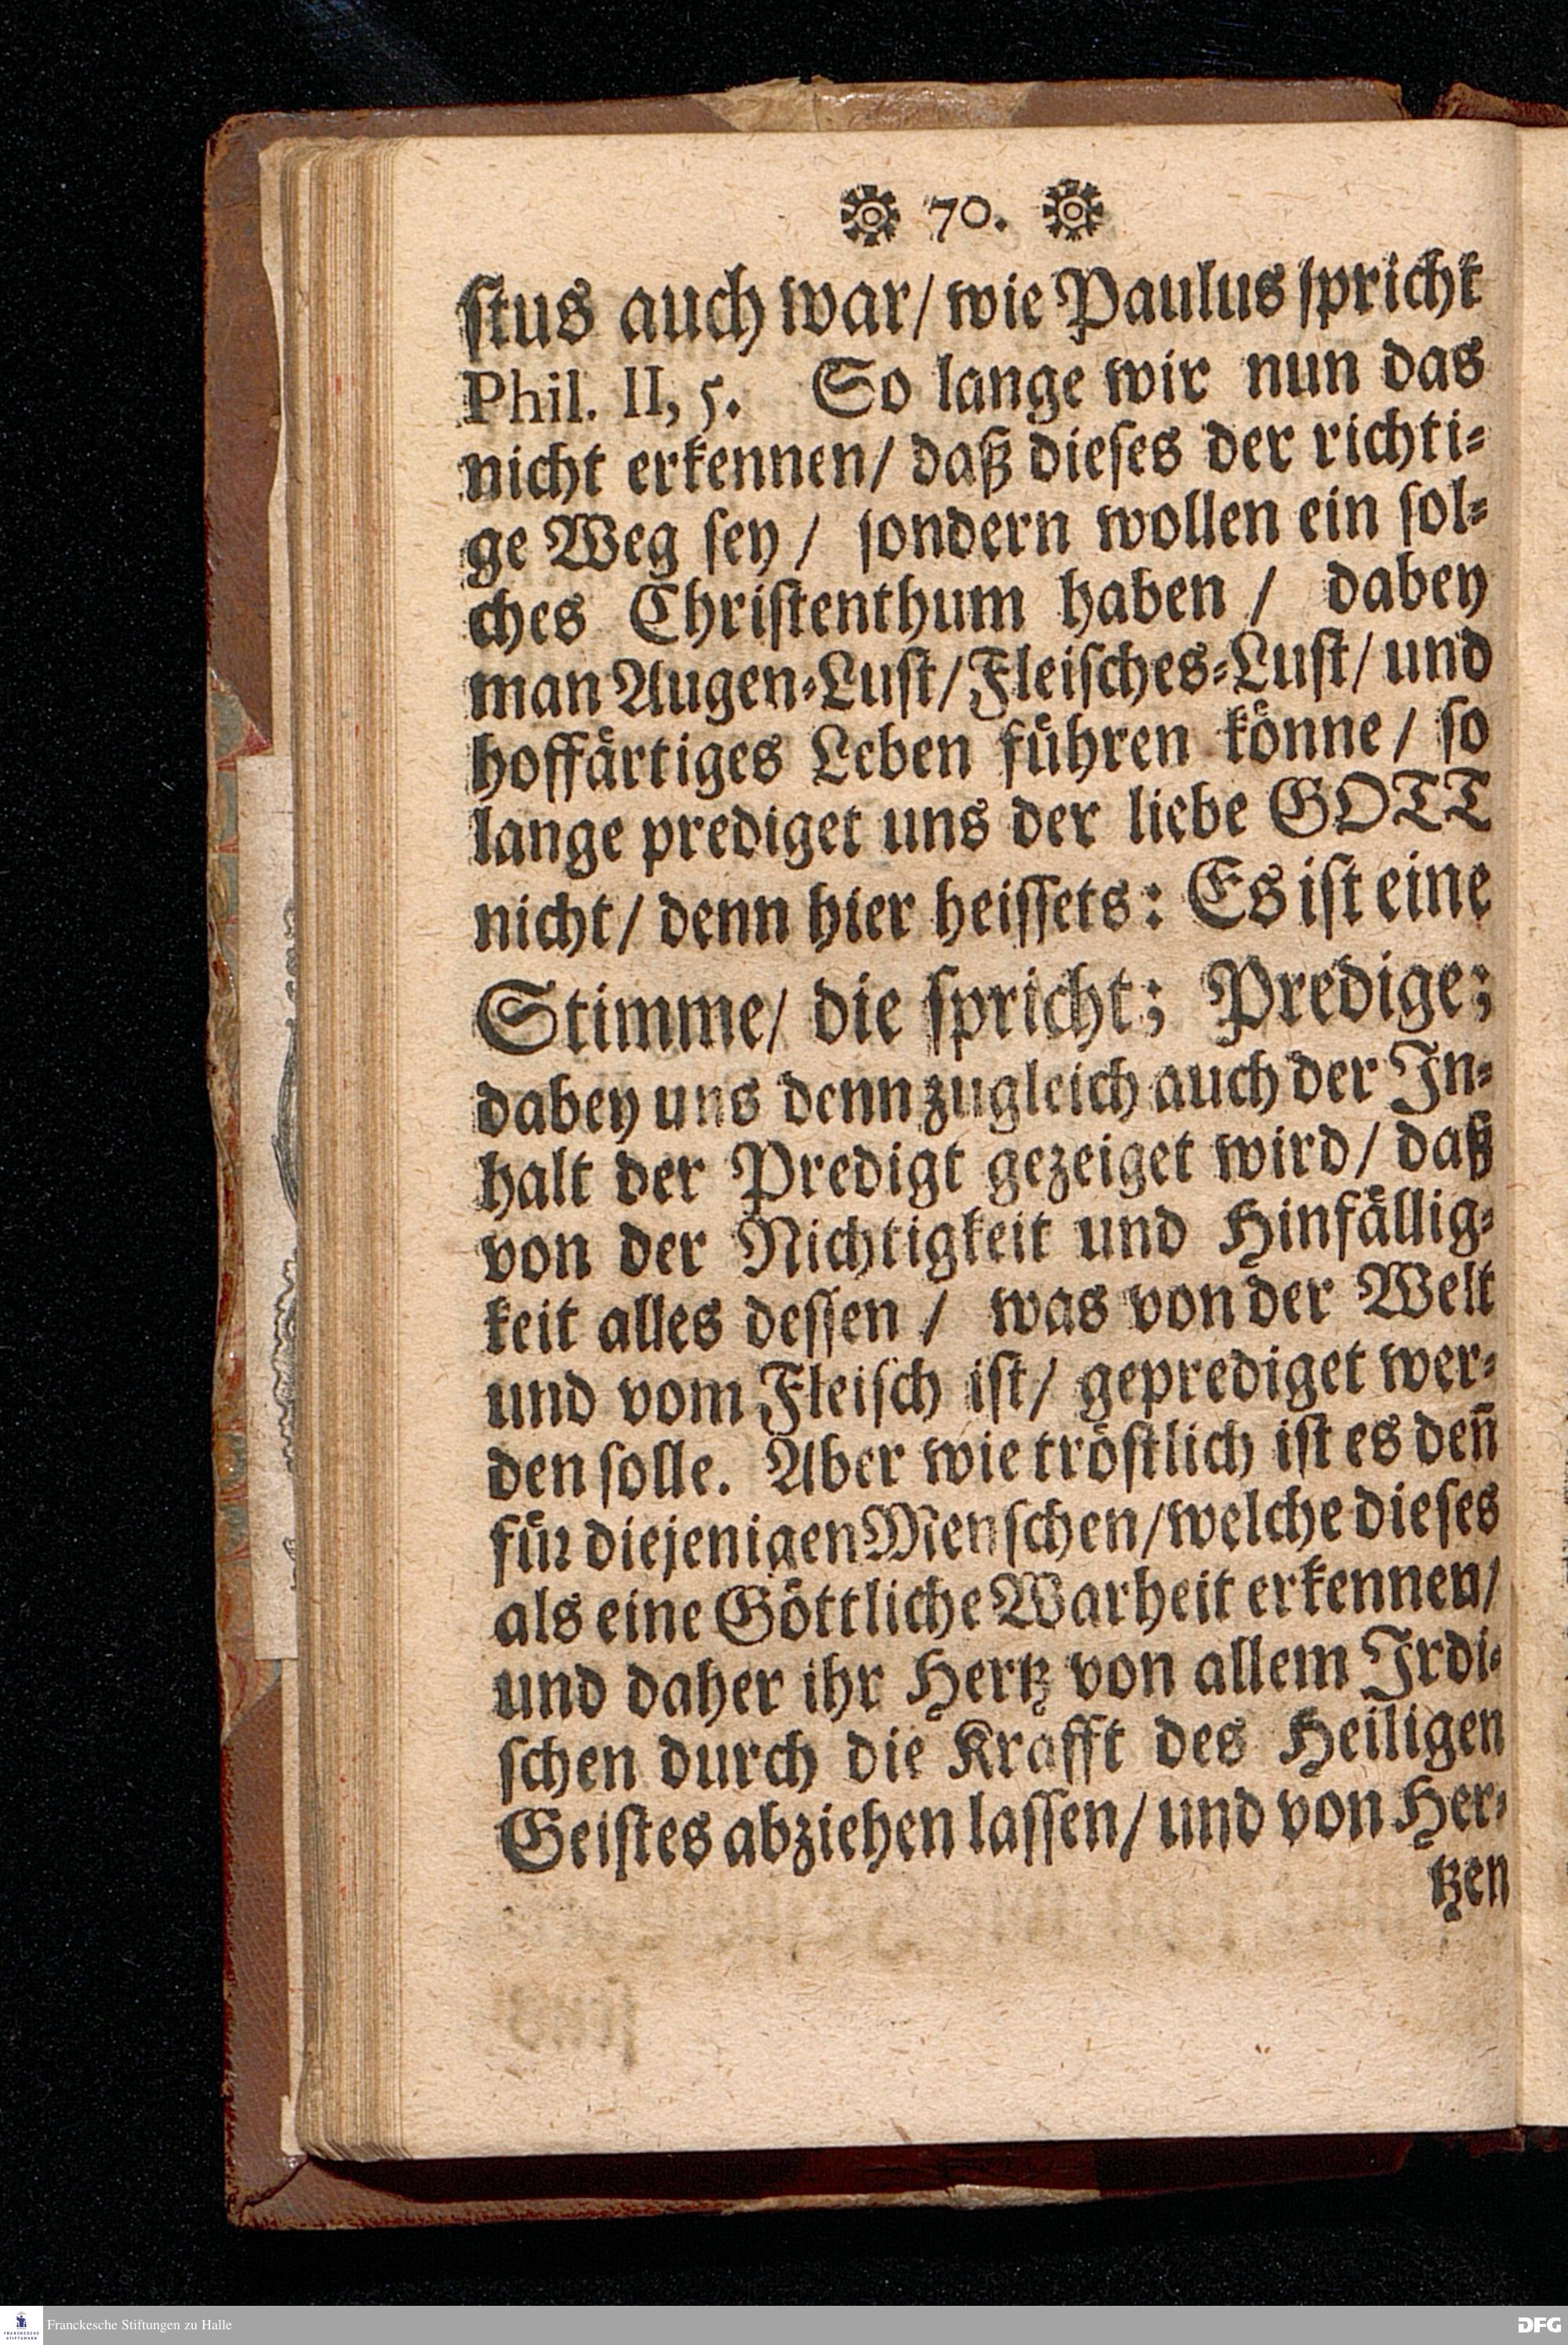 70.
ſtus auch war/ wie Paulus ſpricht
Phil. II, 5. So lange wir nun das
nicht erkennen/ daß dieſes der richti⸗
ge Weg ſey / ſondern wollen ein ſol⸗
ches Chriſtenthum haben / dabey
man Augen⸗Luſt/ Fleiſches⸗Luſt/ und
hoffaͤrtiges Leben fuͤhren koͤnne / ſo
lange prediget uns der liebe GOTT
nicht/ denn hier heiſſets: Es iſt eine
Stimme/ die ſpricht; Predige;
dabey uns denn zugleich auch der In⸗
halt der Predigt gezeiget wird/ daß
von der Nichtigkeit und Hinfaͤllig⸗
keit alles deſſen / was von der Welt
und vom Fleiſch iſt/ geprediget wer⸗
den ſolle. Aber wie troͤſtlich iſt es deñ
fuͤr diejenigen Menſchen/ welche dieſes
als eine Goͤttliche Warheit erkennen/
und daher ihr Hertz von allem Irdi⸗
ſchen durch die Krafft des Heiligen
Geiſtes abziehen laſſen/ und von Her⸗
tzen
FRANCKESCHE STIFTUNGEN
Franckesche Stiftungen zu Halle
DFG